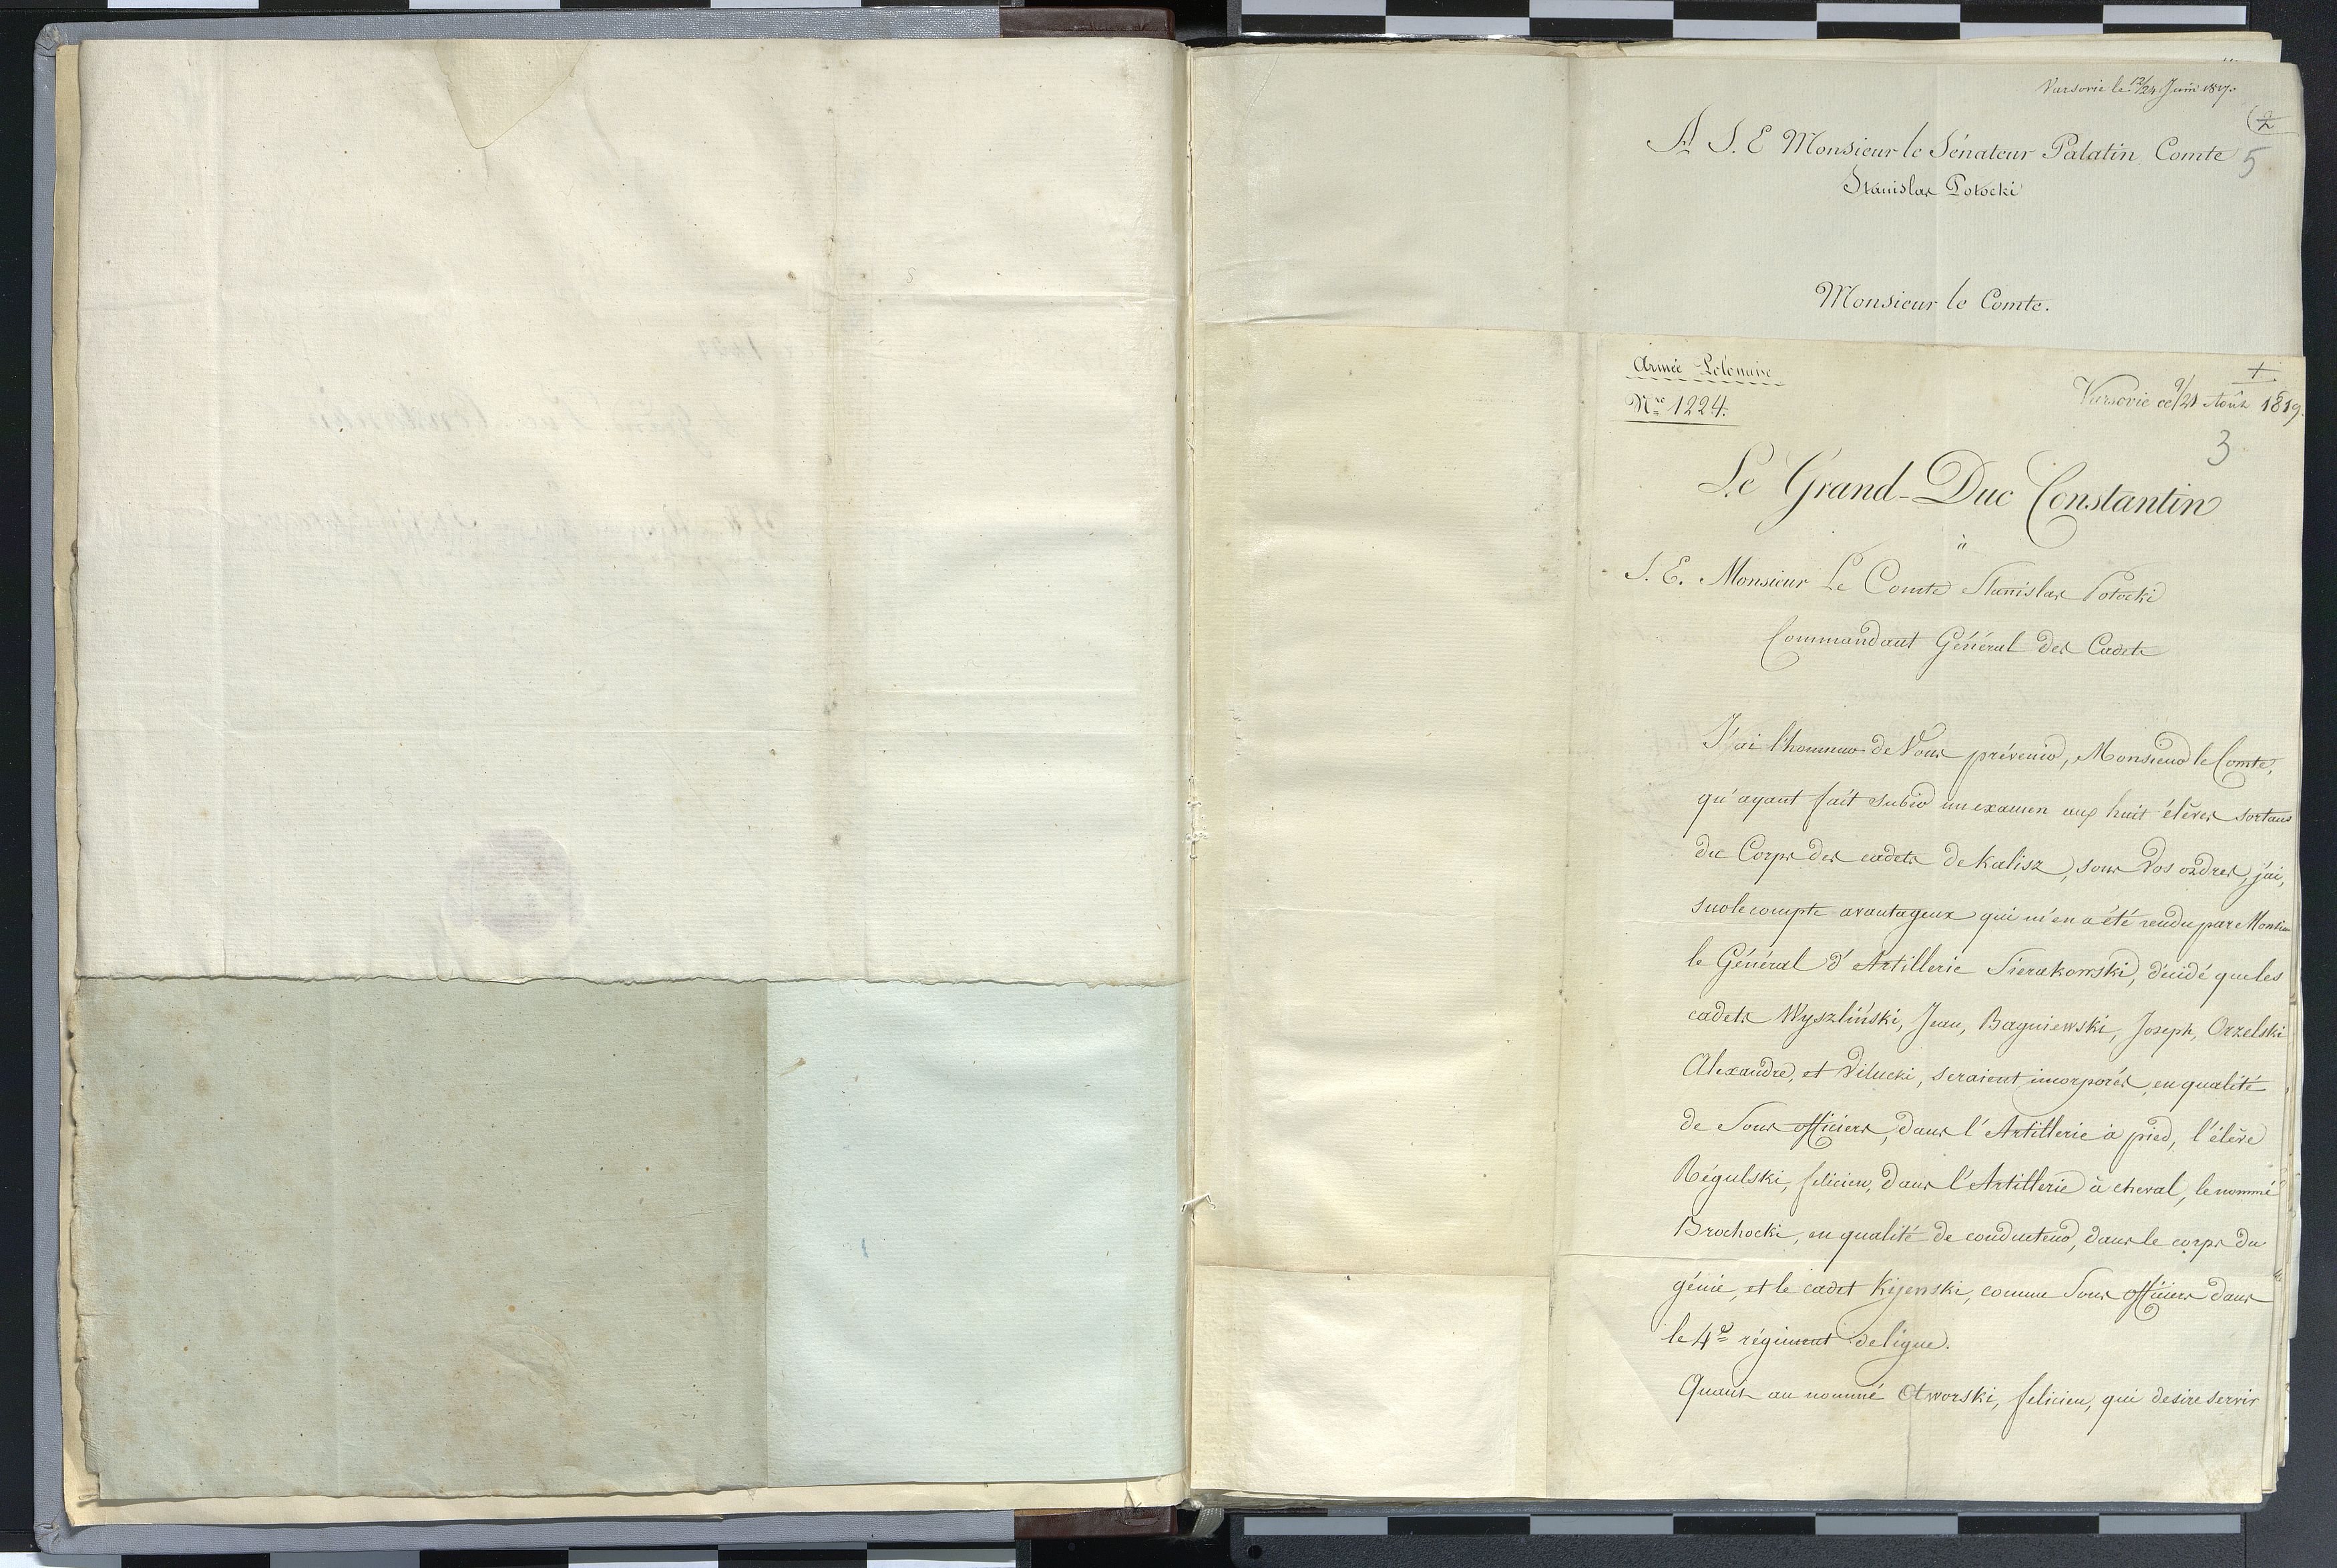 Varsovie le 12/24 Juin 1817.
2
A S. E Monsieur le Sénateur Palatin Comte
5
Stanislas Potocki
Monsieur le Comte.
Armée Polonaise
Nro 1224.
Varsovie ce 9/21 Août 1819.
3
Le Grand-Duc Constantin
à
S. E. Monsieur Le Comte Stanislas Potocki
Commandant Général des Cadets
J'ai l'honneur de Vous prévenir, Monsieur le Comte,
qu'ayant fait subir un examen aux huit élèves sortans
du Corps des cadets de Kalisz, sous Vos ordres, j'ai,
sur le compte avantageux qui m'en a été rendu par Monsieur
le Général d'Artillerie Sierakowski, décidé que les
cadets Wyszliński, Jean, Bagniewski, Joseph, Orzelski
Alexandre, et Vilucki, seraient incorporés, en qualité
de Sous officiers, dans l'Artillerie à pied, l'élève
Régulski, felicien, dans l'Artillerie à cheval, le nommé
Brochocki, en qualité de conducteur, dans le corps du
génie, et le cadet Kijenski, comme Sous officiers dans
le 4e régiment de ligne.
Quant au nommé Otworski, felicien, qui desire servir